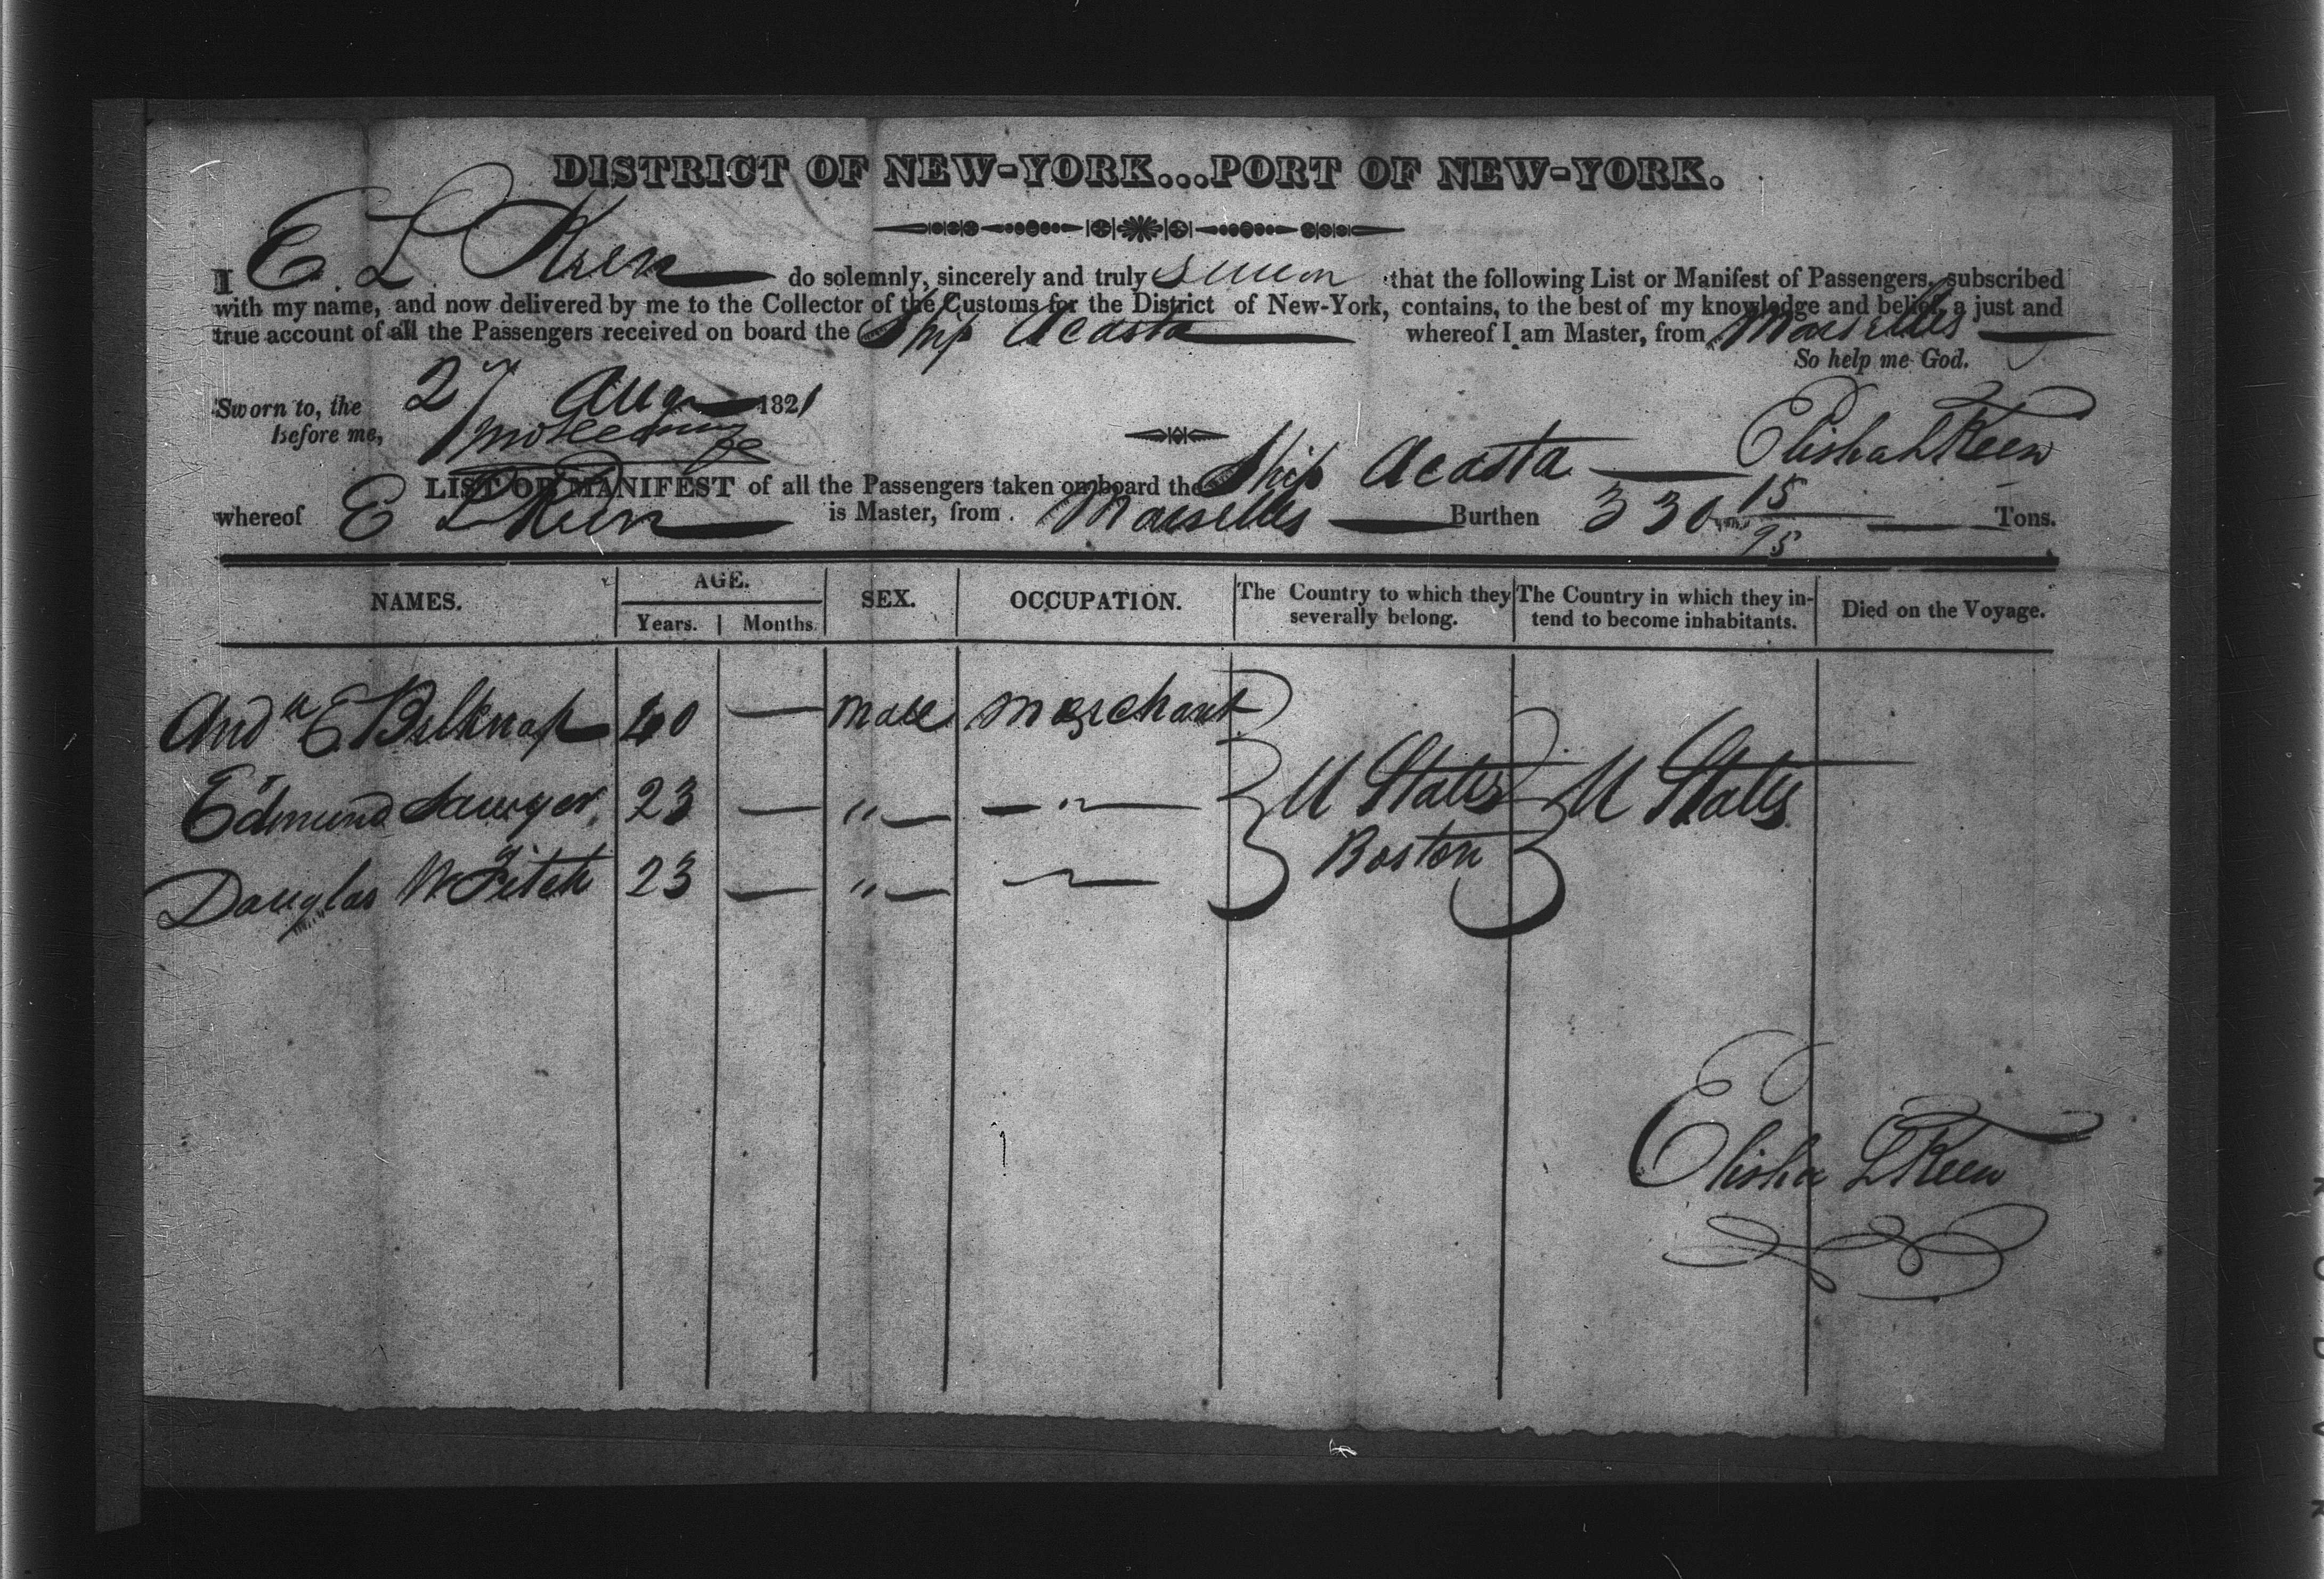 DISTRICT OF NEW-YORK...PORT OF NEW-YORK.
I E. L. Keen do solemnly, sincerely and truly swear that the following List or Manifest of Passengers, subscribed
with my name, and now delivered by me to the Collector of the Customs for the District of New-York, contains, to the best of my knowledge and belief, a just and
true account of all the Passengers received on board the Ship Acasta whereof I am Master, from Marseilles
So help me God.
Sworn to, the 27 Aug 1821
Before me,
Elisha L Keen
LIST OR MANIFEST of all the Passengers taken on board the Ship Acasta
whereof E L Keen is Master, from Marseilles Burthen 330 15/95 Tons.
NAMES. AGE. SEX. OCCUPATION. The Country to which they severally belong. The Country in which they intend to become inhabitants. Died on the Voyage.
Years. Months.
And.w E Belknap 40 — male merchant
Edmund Sawyer 23 — " — — " — U States U States
Douglas W Fitch 23 — " — — Boston
Elisha L Keen